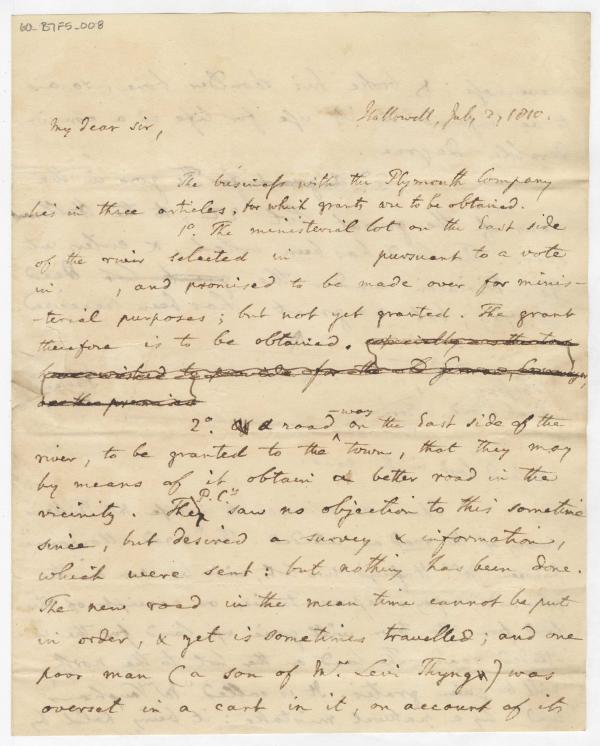 60-B7F5-008
Hallowell, July 2, 1810.
My dear sir,
The business with the Plymouth Company
lies in three articles, for which grants are to be obtained.
1°. The ministerial lot on the East side
of the river selected in pursuant to a vote
in , and promised to be made over for minis-
-terial purposes; but not yet granted. The grant
therefore is to be obtained. especially as the town
have wished to provide for the old
as the promised
2°. a road-way on the East side of the
river, to be granted to the town, that they may
by means of it obtain a better road in the
vicinity. The P. Cy saw no objection to this sometime
since, but desired a survey & information,
which were sent: but nothing has been done.
The new road in the mean time cannot be put
in order, & yet is sometimes travelled; and one
poor man (a son of Mr Levi Thyng) was
overset in a cart in it, on account of its